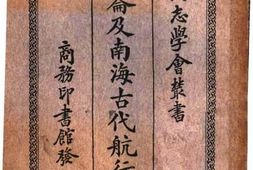 志學會叢書
崙及南海古代航行
商務印書館發